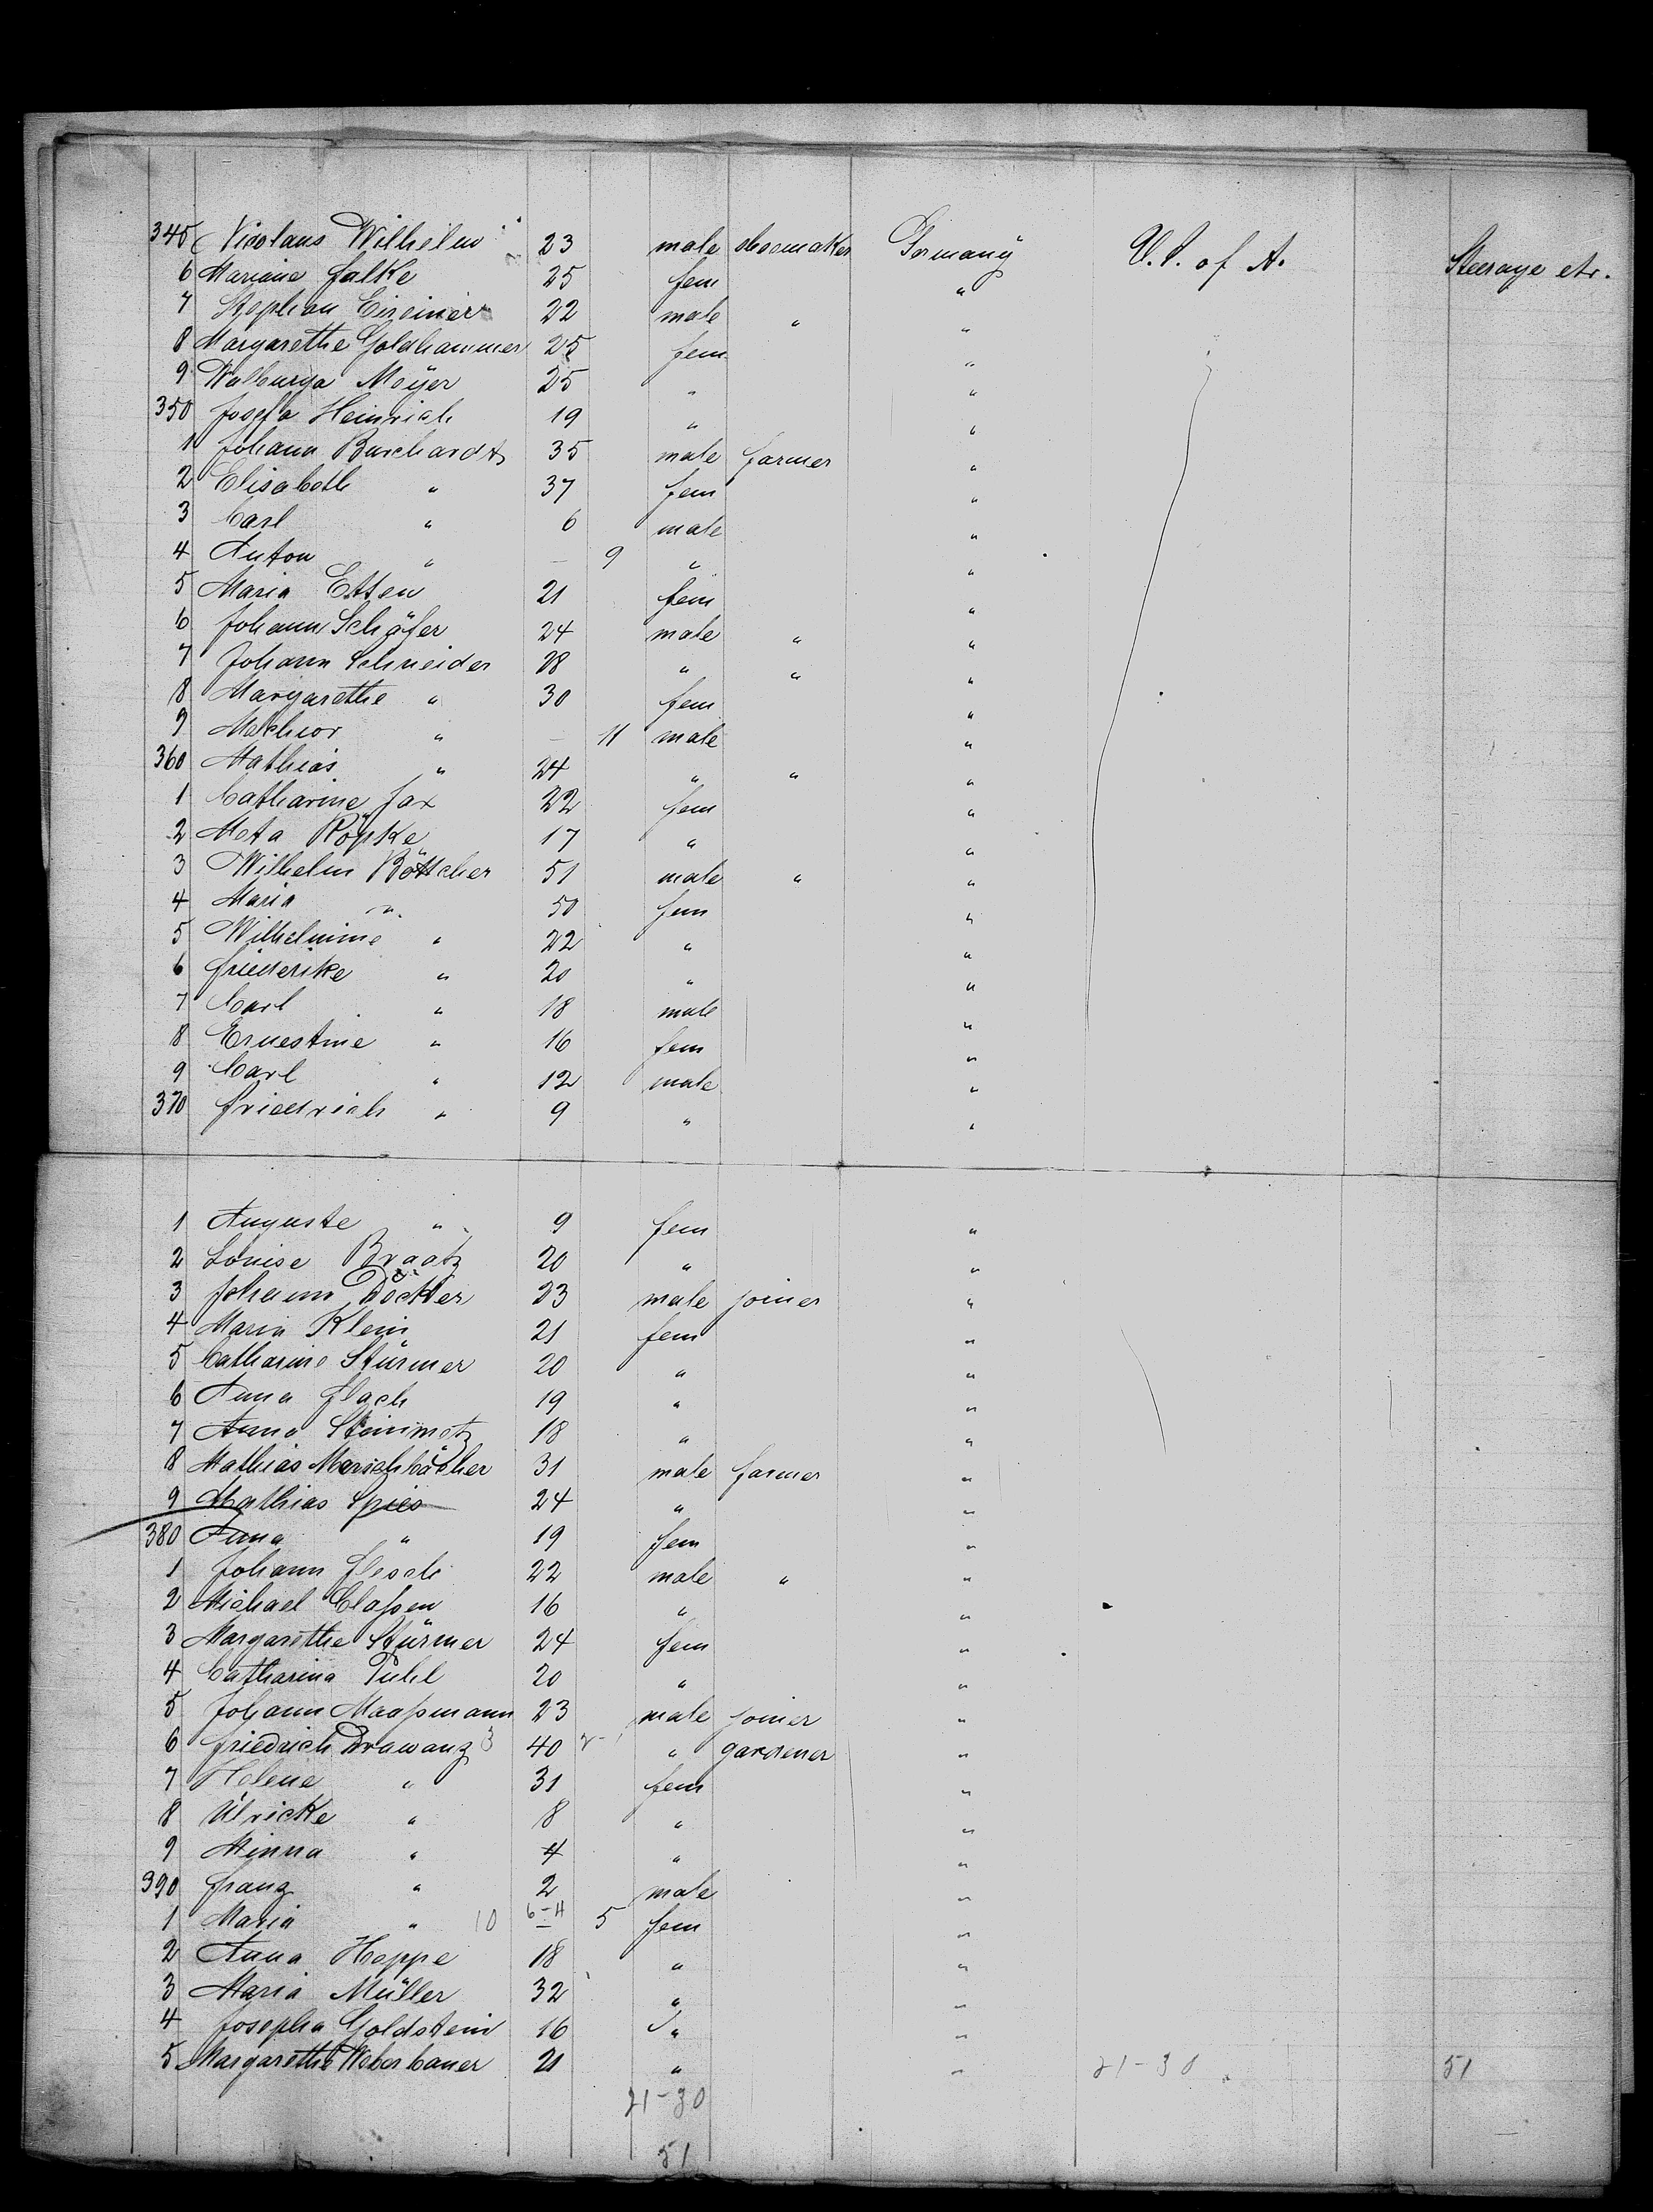 345 Nicolaus Wilhelm 23 male shoemaker Germany U.S. of A. Steerage etc.
6 Mariane Falke 25 fem "
7 Stephan 22 male " "
8 Margarethe Goldhammer 25 fem "
9 Walburga Meÿer 25 " "
350 Josefa Heinrich 19 " "
1 Johann Burchardt 35 male farmer "
2 Elisabeth " 37 fem "
3 Carl " 6 male "
4 Anton " — 9 " "
5 Maria Etten 21 fem "
6 Johann Schäfer 24 male " "
7 Johann Schneider 28 " " "
8 Margarethe " 30 fem "
9 Melchior " — 11 male "
360 Mathias " 24 " " "
1 Catharine Jax 22 fem "
2 Meta Röpke 17 " "
3 Wilhelm Böttcher 51 male " "
4 Maria " 50 fem "
5 Wilhelmine " 22 " "
6 Friederike " 20 " "
7 Carl " 18 male "
8 Ernestine " 16 fem "
9 Carl " 12 male "
370 Friedrich " 9 " "
1 Auguste " 9 fem "
2 Louise Braatz 20 " "
3 Johann Döckter 23 male joiner "
4 Maria Klein 21 fem "
5 Catharine Stürmer 20 " "
6 Anna Flach 19 " "
7 Anna Steinmetz 18 " "
8 Mathias 31 male farmer "
9 Mathias Spies 24 " "
380 Anna " 19 fem "
1 Johann Flesch 22 male " "
2 Michael Claßen 16 " "
3 Margarethe Stürmer 24 fem "
4 Catharina 20 " "
5 Johann Maaßmann 23 male joiner "
6 Friedrich Drawanz 3 40 " gardener "
7 Helene " 31 fem "
8 Ulricke " 8 " "
9 Minna " 4 " "
390 Franz " 2 male "
1 Maria " 10 6-4 — 5 fem "
2 Anna Hoppe 18 " "
3 Maria Müller 32 " "
4 Josepha Goldstein 16 " "
5 Margarethe Weberbauer 21 " " 21-30 51
21-30
51